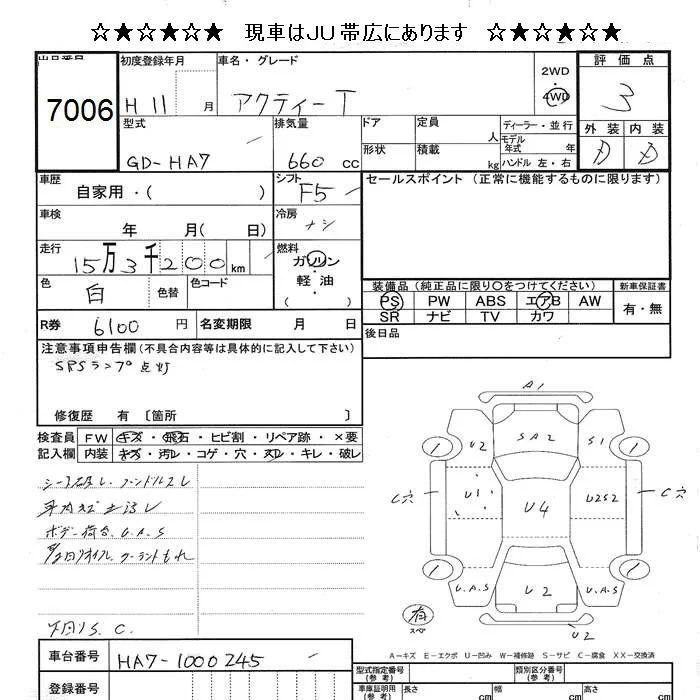 ☆★☆★☆★ 現車はJU帯広にあります ☆★☆★☆★
出品番号 7006
初度登録年月 H 11 月
車名・グレード アクティー T
2WD 4WD
評価点 3
型式 GD-HA7
排気量 660 cc
ドア 定員 人
形状 積載 kg
ディーラー・並行
モデル年式 年
ハンドル 左・右
外装 内装
D D
車歴 自家用・( )
シフト F5
セールスポイント (正常に機能するものに限ります)
車検 年 月( 日)
冷房 ナシ
走行 15万3千200km
燃料 ガソリン・軽油
色 白 色替 色コード
装備品(純正品に限り○をつけてください)
新車保証書
PS PW ABS エアB AW
有・無
SR ナビ TV カワ
R券 6100 円 名変期限 月 日
後日品
注意事項申告欄(不具合内容等は具体的に記入して下さい)
SRSランプ点灯
修復歴 有 〔箇所 〕
検査員 FW キズ・飛石・ヒビ割・リペア跡・×要
記入欄 内装 キズ・汚レ・コゲ・穴・スレ・キレ・破レ
シート破レ ハンドルスレ
ボデー荷台 U.A.S
クーラントもれ
下回りS. C.
A1
U2 SA2 S1
C穴 U1 U4 U2S2 C穴
1 1
1 1
U.A.S U2 U.A.S
有
スペア
U2
A-キズ E-エクボ U-凹み W-補修跡 S-サビ C-腐食 XX-交換済
車台番号 HA7-1000245
型式指定番号(参考) 類別区分番号(参考)
登録番号
車庫証明用(参考) 長さ cm 幅 cm 高さ cm